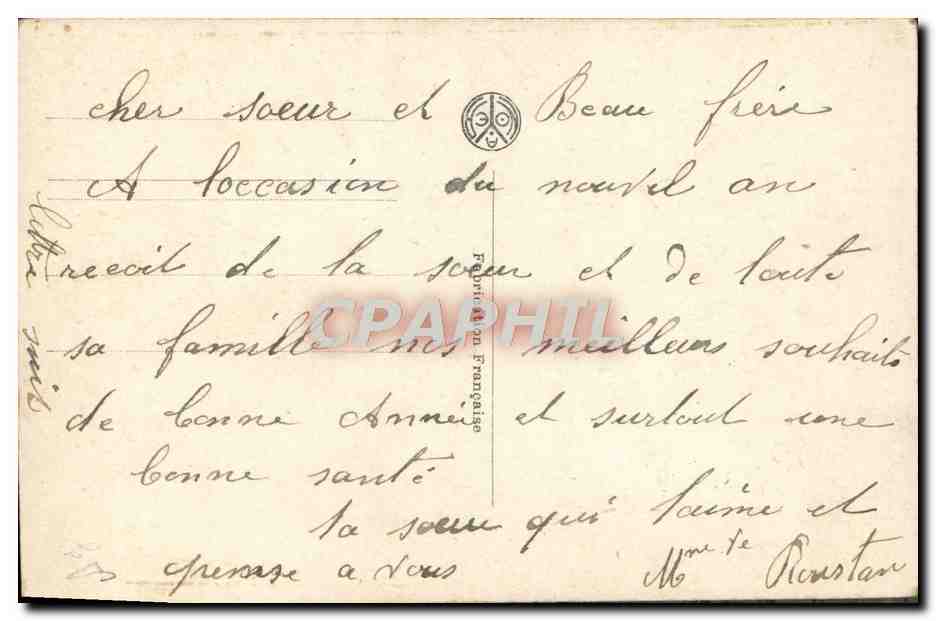 cher soeur et Beau frère
A loccasion du nouvel an
recoit de ta soeur et de toute
sa famille nos meilleurs souhaits
de bonne Année et surtout une
bonne santé
ta soeur qui taime et
pense a vous
Mme Ve Roustan
lettre suit
Fabrication Française
CPAPHIL